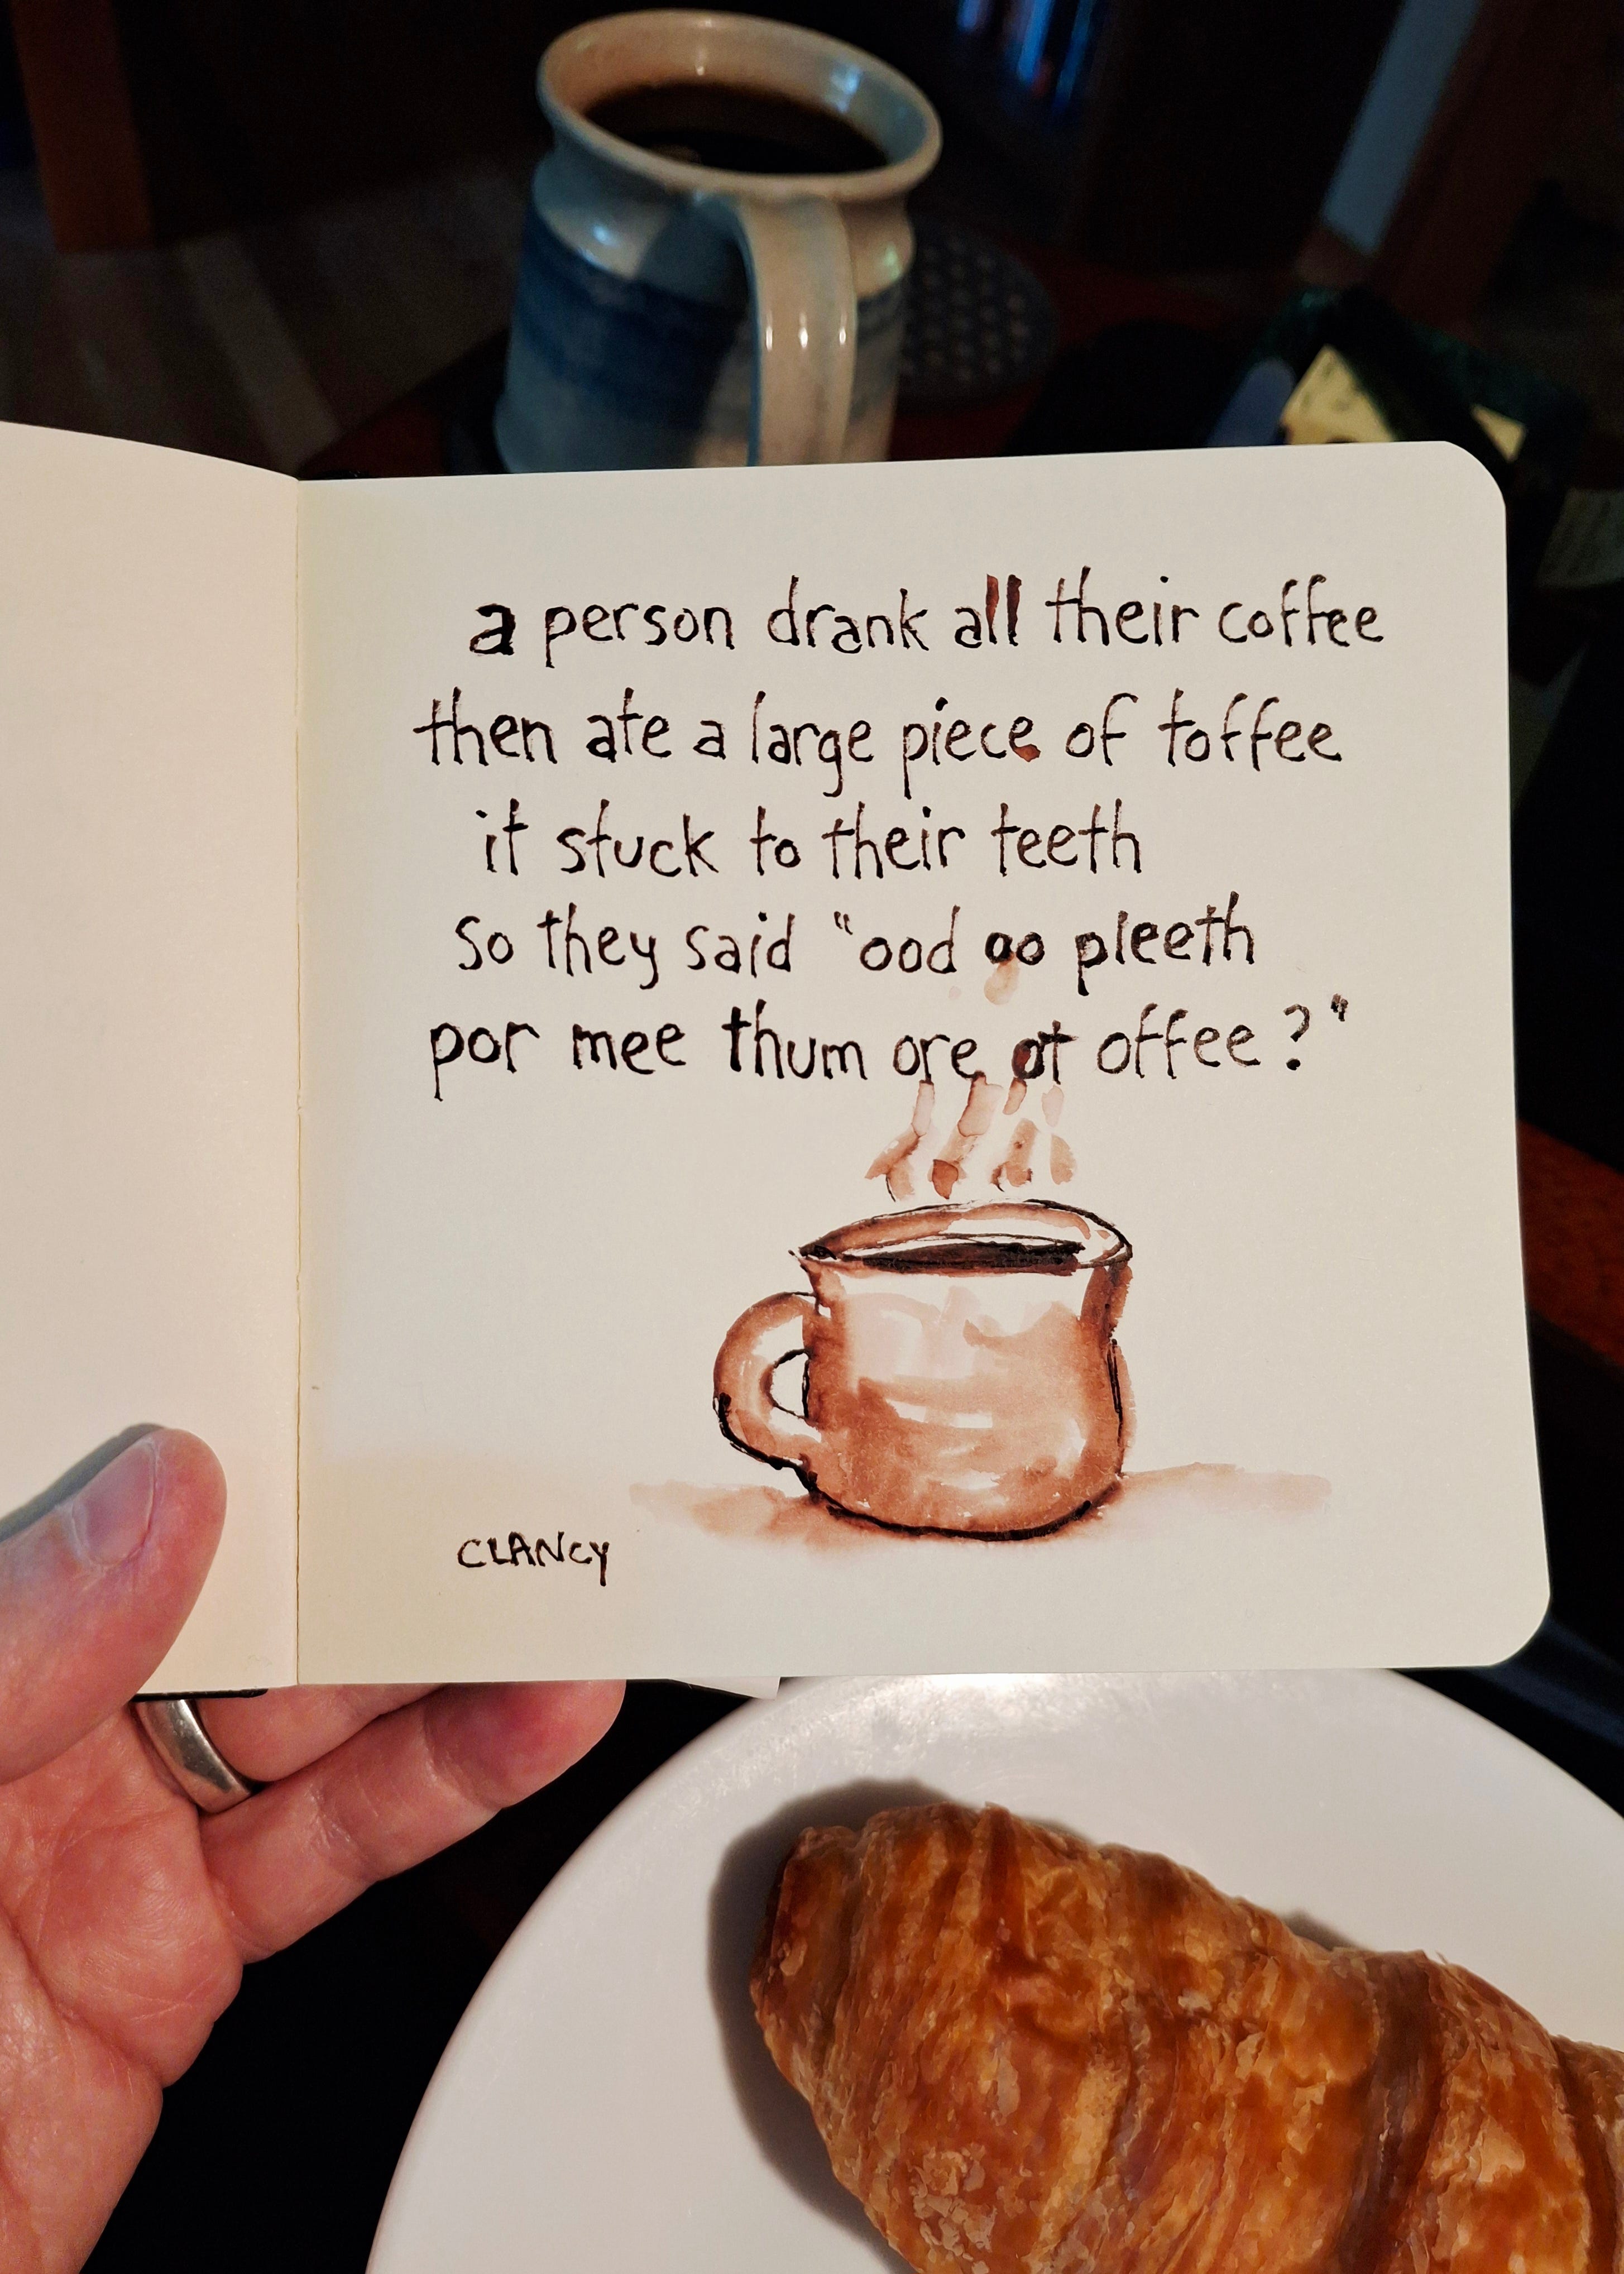 a person drank all their coffee
then ate a large piece of toffee
it stuck to their teeth
so they said "ood oo pleeth
por mee thum ore ot offee?"
CLANCY